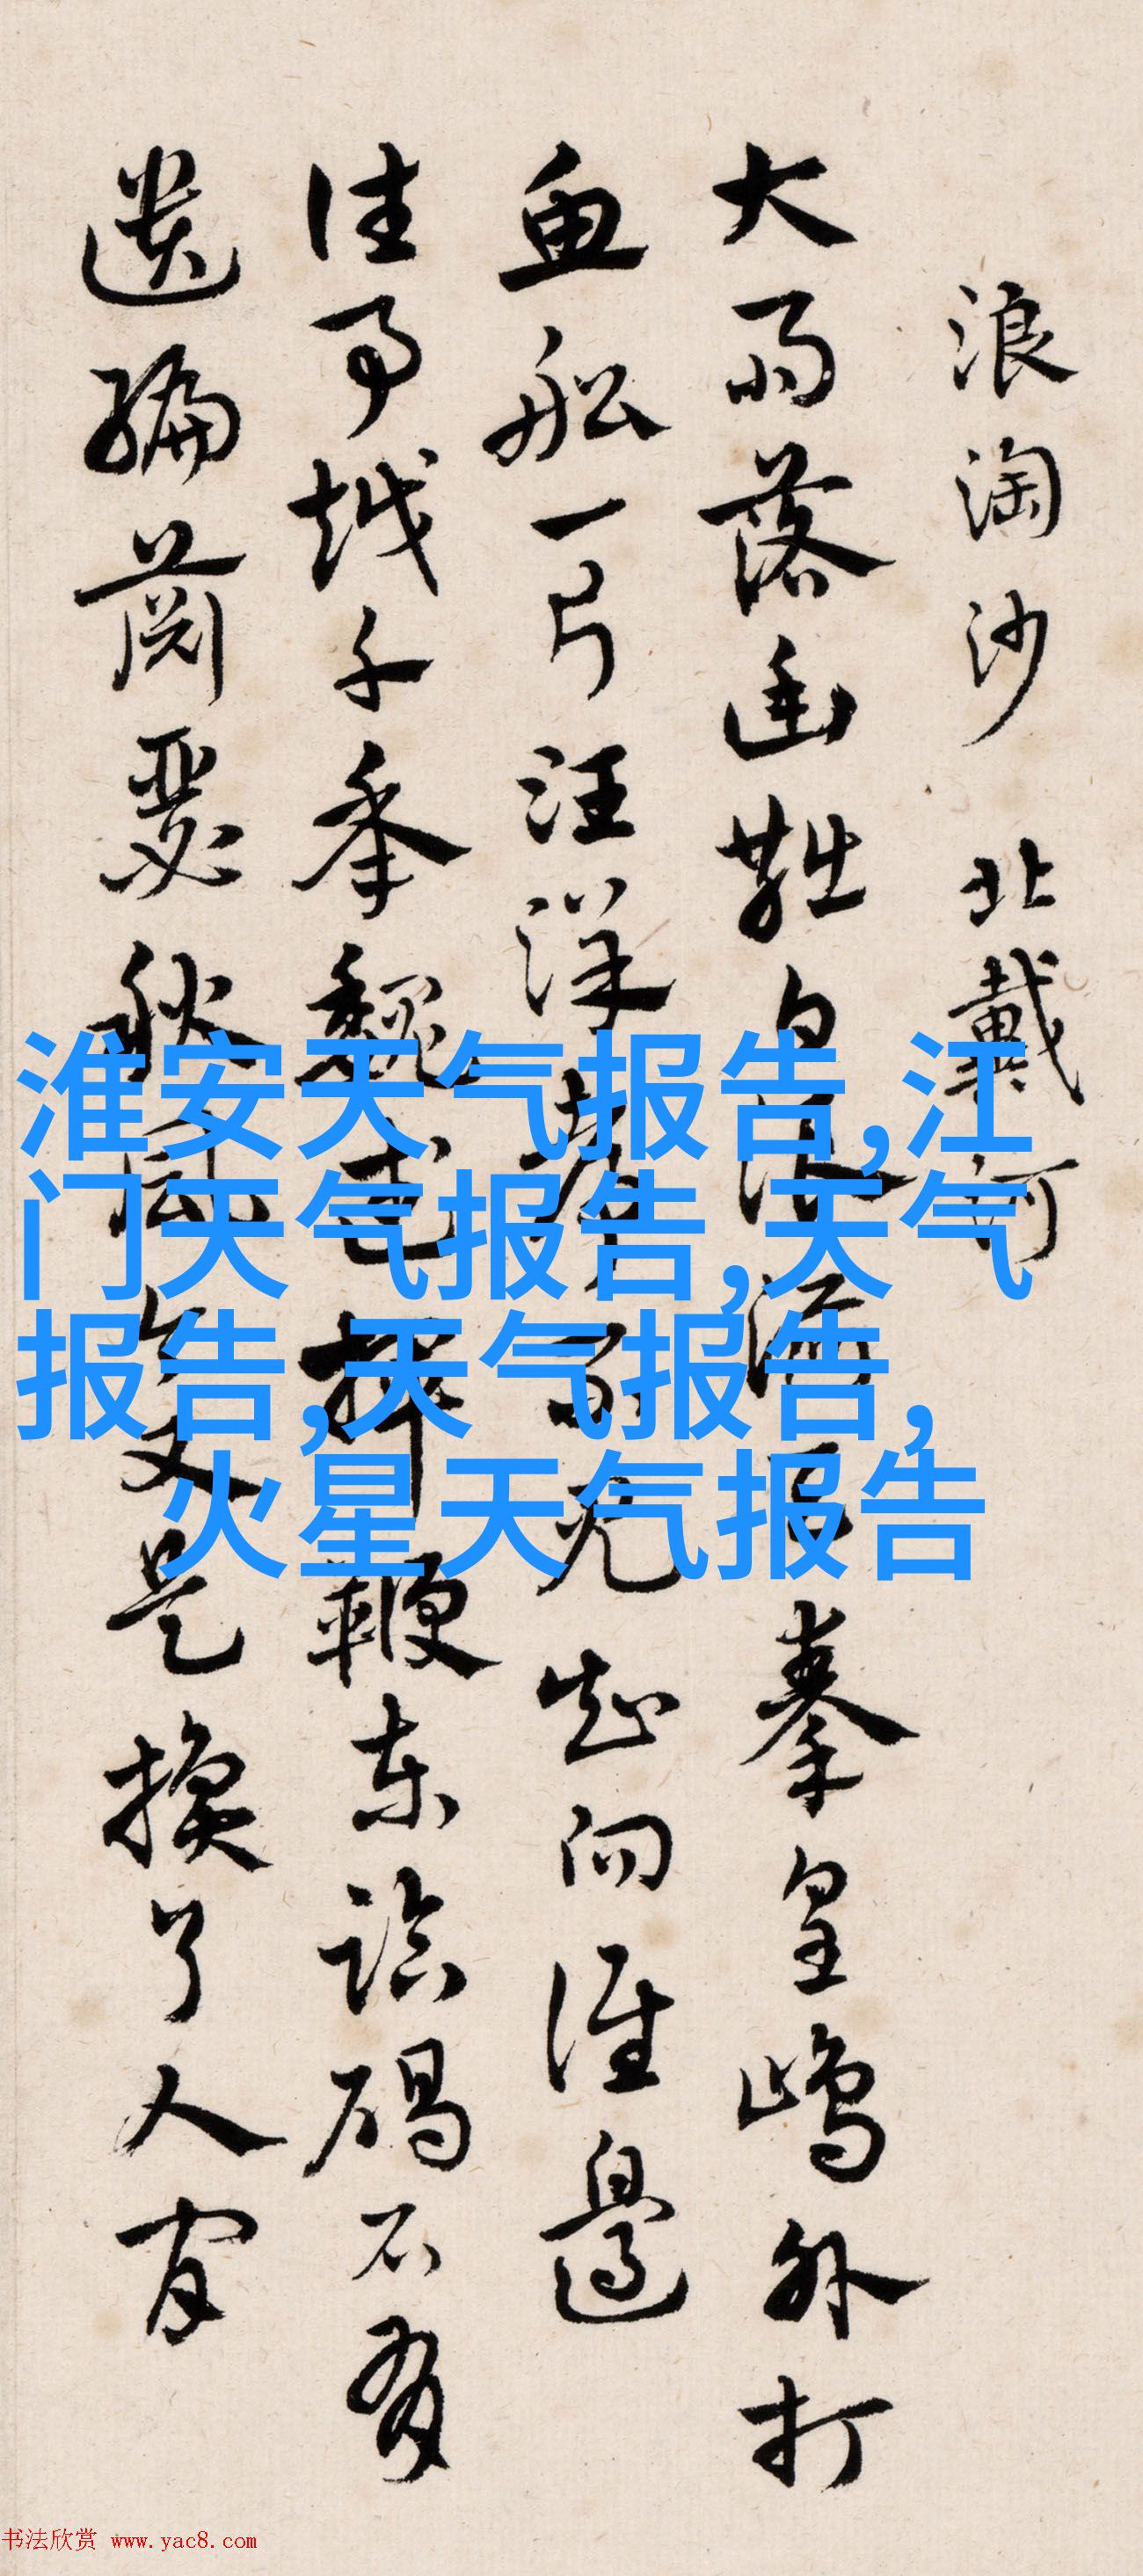 浪淘沙 北戴河
大雨落幽燕白浪滔天秦皇島外打
魚船一片汪洋都不見知向誰邊
往事越千年魏武揮鞭東臨碣石有
遺編蕭瑟秋風今又是換了人間
淮安天气报告,江
门天气报告,天气
报告,天气报告,
火星天气报告
书法欣赏 www.yac8.com